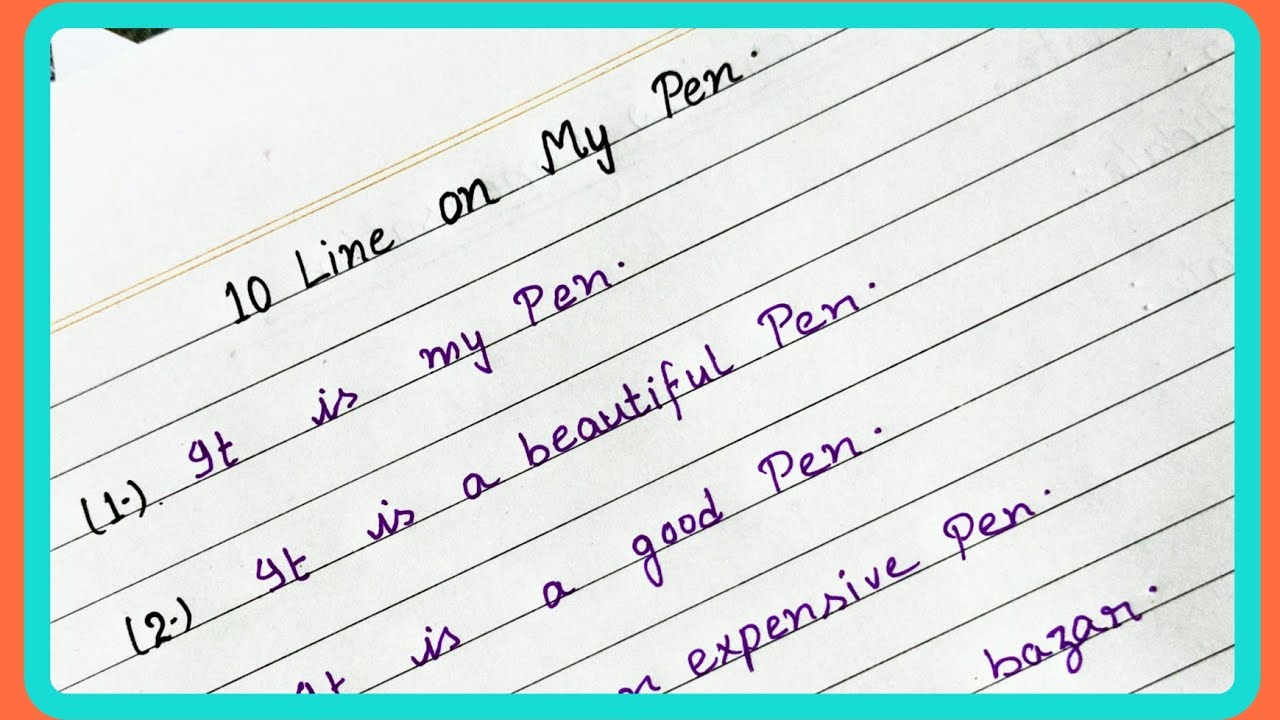 10 Line on My Pen.
(1.) It is my Pen.
(2.) It is a beautiful Pen.
It is a good Pen.
expensive Pen.
bazar.